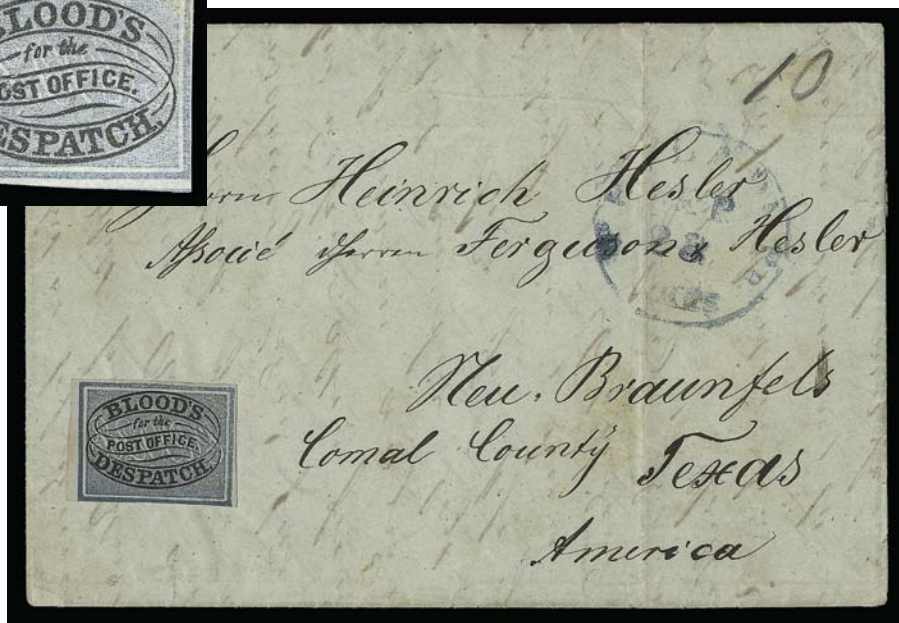 BLOOD'S
for the
POST OFFICE.
DESPATCH.
10
Heinrich Hesler
Associé Herrn Ferguson & Hesler
28
Neu. Braunfels
Comal County
Texas
America
BLOOD'S
for the
POST OFFICE.
DESPATCH.